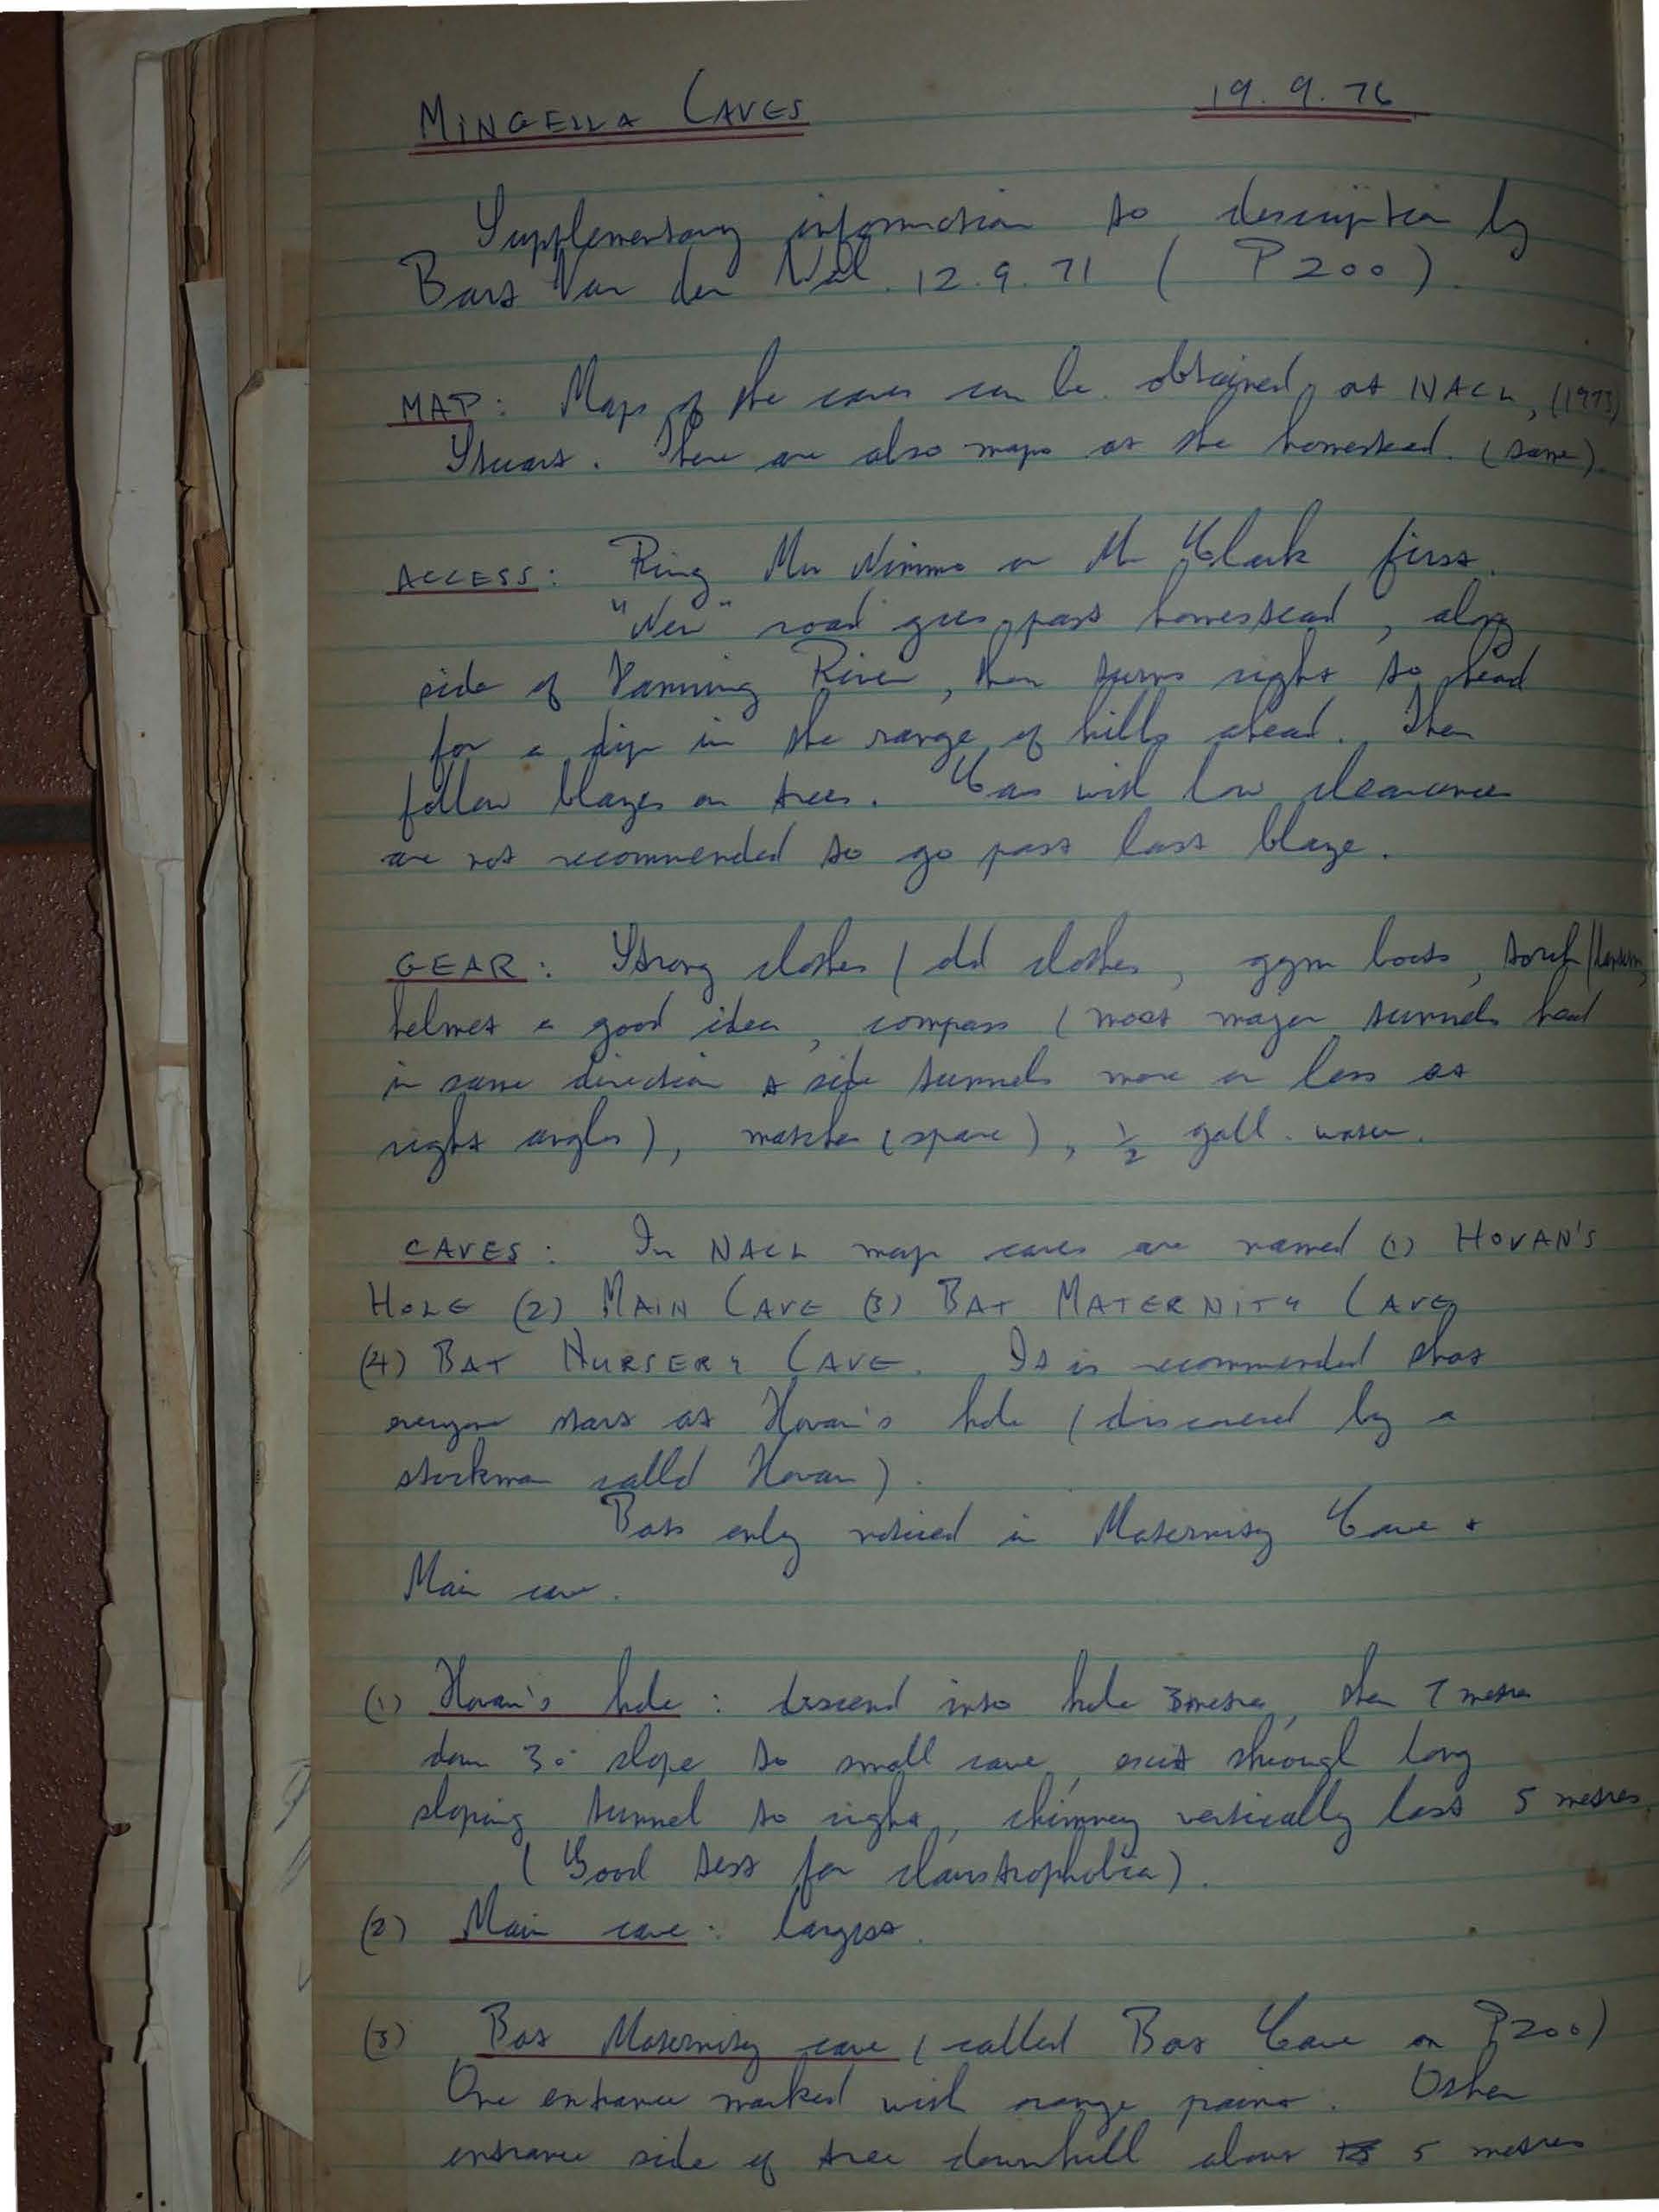 MINGELLA CAVES 19.9.76
Supplementary information to description by
Bart Van der Wal. 12.9.71 ( P200).
MAP: Maps of the caves can be obtained at NACL, (1973)
Stuart. There are also maps at the homestead. (same).
ACCESS: Ring Mr Nimmo or Mr Clark first.
"New" road goes past homestead, along
side of Fanning River, then turns right to head
for a dip in the range of hills ahead. Then
follow blazes on trees. Cars with low clearance
are not recommended to go past last blaze.
GEAR: Strong clothes / old clothes, gym boots, torch/lantern,
helmet a good idea, compass (most major tunnels head
in same direction & side tunnels more or less at
right angles), matches (spare), ½ gall. water.
CAVES: In NACL map caves are named (1) HOVAN'S
HOLE (2) MAIN CAVE (3) BAT MATERNITY CAVE
(4) BAT NURSERY CAVE. It is recommended that
everyone start at Hovan's hole (discovered by a
stockman calld Hovan).
Bats only noticed in Maternity Cave &
Main cave.
(1) Hovan's hole: descend into hole 3 metres, then 7 metres
down 30 slope to small cave, exit through long
sloping tunnel to right, chimney vertically last 5 metres.
(Good test for claustrophobia).
(2) Main cave: largest.
(3) Bat Maternity cave (called Bat Cave on P200)
One entrance marked with orange paint. Other
entrance side of tree downhill about 5 metres